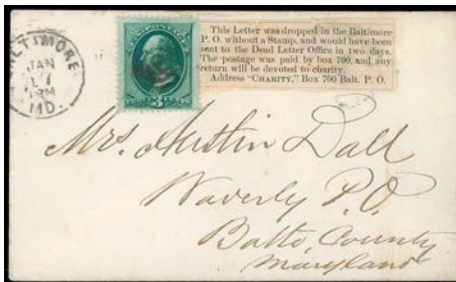 BALTIMORE
JAN
MD.
THREE CENTS
This Letter was dropped in the Baltimore
P. O. without a Stamp, and would have been
sent to the Dead Letter Office in two days.
The postage was paid by box 700, and any
return will be devoted to charity.
Address "CHARITY," Box 700 Balt. P. O.
Mrs. Austin Dall
Waverly P.O.
Balto. County
Maryland